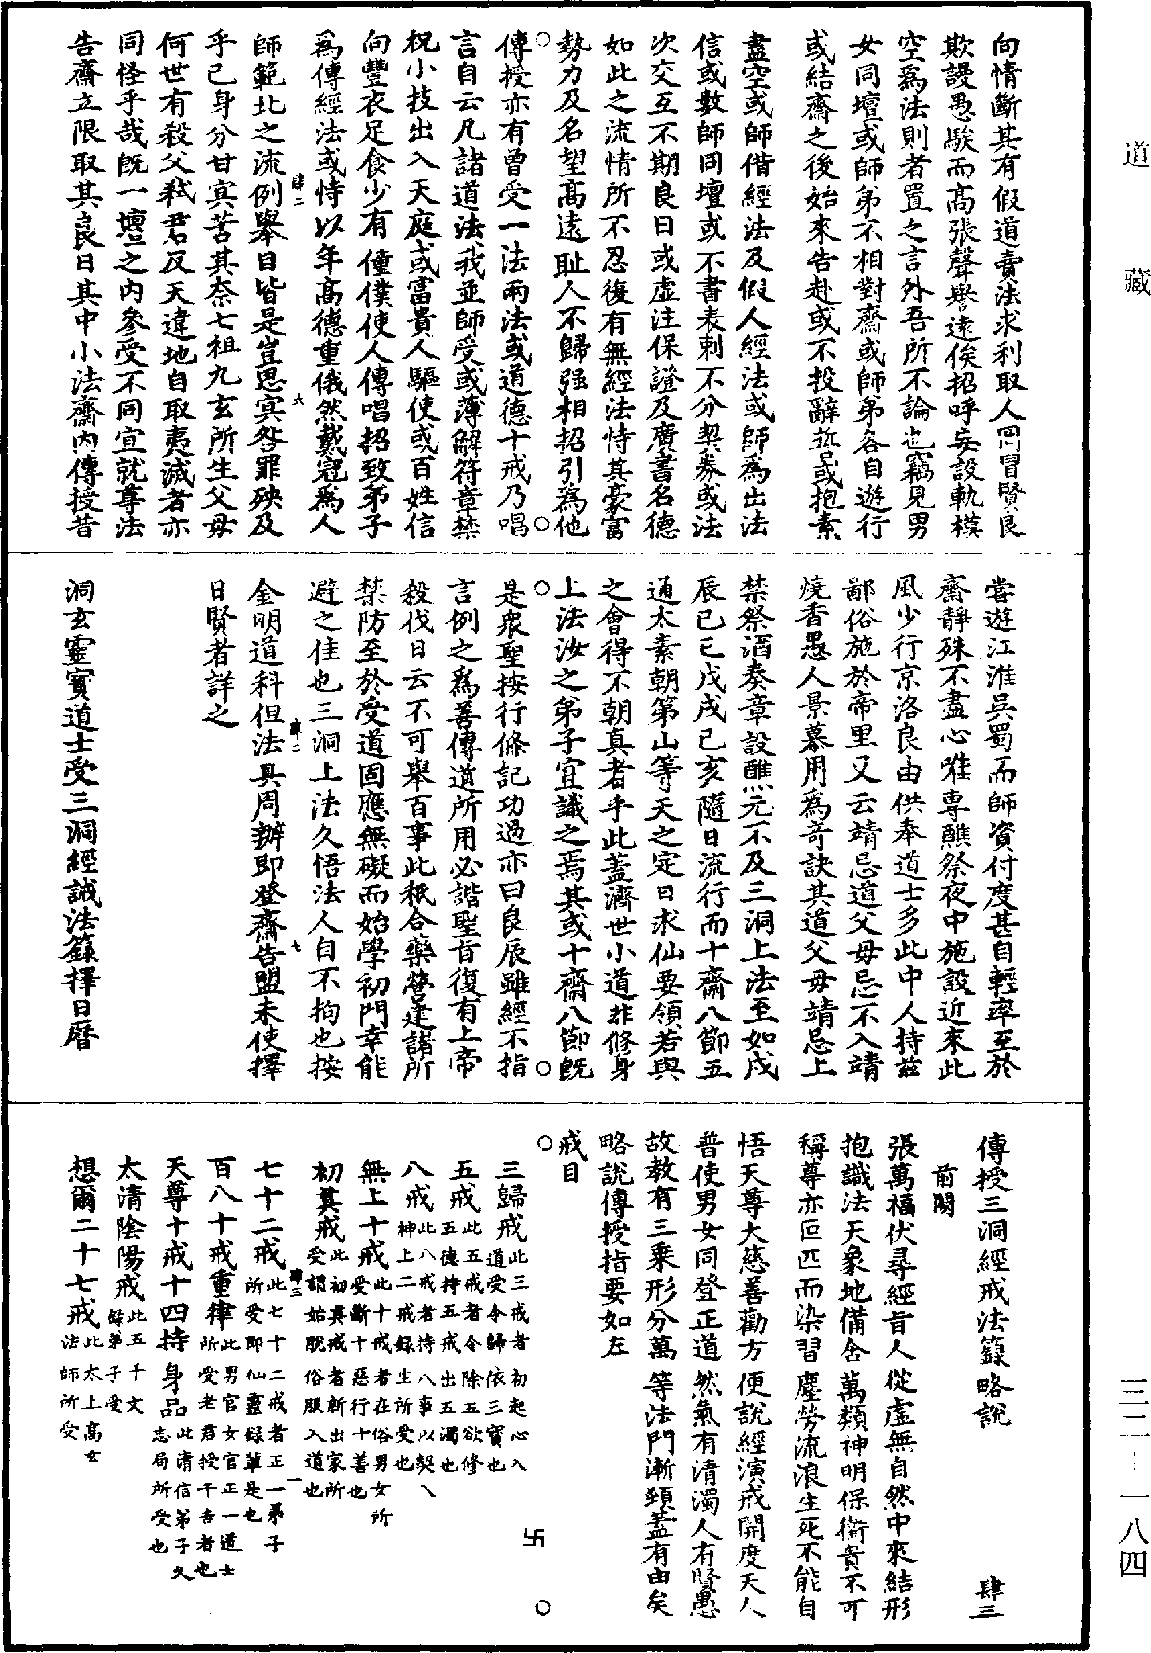 道藏
三二－一八四
向情斷其有假道賣法求利取人罔冒賢良
欺謾愚騃而高張聲譽遠俟招呼妄設軌模
空爲法則者置之言外吾所不論也竊見男
女同壇或師弟不相對齋或師弟各自遊行
或結齋之後始來告赴或不投辭誓或抱素
盡空或師借經法及假人經法或師爲出法
信或數師同壇或不書表刺不分契券或法
次交互不期良日或虛注保證及廣書名德
如此之流情所不忍復有無經法恃其豪富
勢力及名望高遠耻人不歸强相招引爲他
傳授亦有曾受一法兩法或道德十戒乃唱
言自云凡諸道法我並師受或薄解符章禁
祝小技出入天庭或富貴人驅使或百姓信
向豐衣足食少有僮僕使人傳唱招致弟子
爲傳經法或恃以年高德重俄然戴冠爲人
師範此之流例舉目皆是豈思冥咎罪殃及
乎己身分甘冥苦其奈七祖九玄所生父母
何世有殺父弒君反天違地自取夷滅者亦
同怪乎哉既一壇之内參受不同宜就尊法
告齋立限取其良日其中小法齋内傳授昔
肆二
六
嘗遊江淮吳蜀而師資付度甚自輕率至於
齋靜殊不盡心唯專醮祭夜中施設近來此
風少行京洛良由供奉道士多此中人持兹
鄙俗施於帝里又云靖忌道父母忌不入靖
燒香愚人景慕用爲奇訣其道父母靖忌上
禁祭酒奏章設醮元不及三洞上法至如戌
辰己巳戊戌己亥隨日流行而十齋八節五
通太素朝第山等天之定日求仙要領若與
之會得不朝真者乎此蓋濟世小道非修身
上法汝之弟子宜識之焉其或十齋八節既
是衆聖按行條記功過亦曰良辰雖經不指
言例之爲善傳道所用必諧聖旨復有上帝
殺伐日云不可舉百事此秖合藥營建諸所
禁防至於受道固應無礙而始學初門幸能
避之佳也三洞上法久悟法人自不拘也按
金明道科但法具周辦即登齋告盟未使擇
日賢者詳之
肆二
七
洞玄靈寶道士受三洞經誡法籙擇日曆
傳授三洞經戒法籙略說
肆三
前闕
張萬福伏尋經旨人從虛無自然中來結形
抱識法天象地備含萬類神明保衛貴不可
稱尊亦叵匹而染習塵勞流浪生死不能自
悟天尊大慈善勸方便說經演戒開度天人
普使男女同登正道然氣有清濁人有賢愚
故教有三乘形分萬等法門漸頓蓋有由矣
略說傳授指要如左
戒目
三歸戒此三戒者初起心入道受令歸依三寶也
五戒此五戒者令除五欲修五德持五戒出五濁也
八戒此八戒者持八事以契八神上二戒録生所受也
無上十戒此十戒者在俗男女所受斷十惡行十善也
初真戒此初真戒者新出家所受謂始脫俗服入道也
七十二戒此七十二戒者正一弟子所受即仙靈録輩是也
百八十戒重律此男官女官正一道士所受老君授干吉者也
天尊十戒十四持身品此清信弟子久志局所受也
太清陰陽戒此五千文録弟子受
想爾二十七戒此太上高玄法師所受
肆三
一